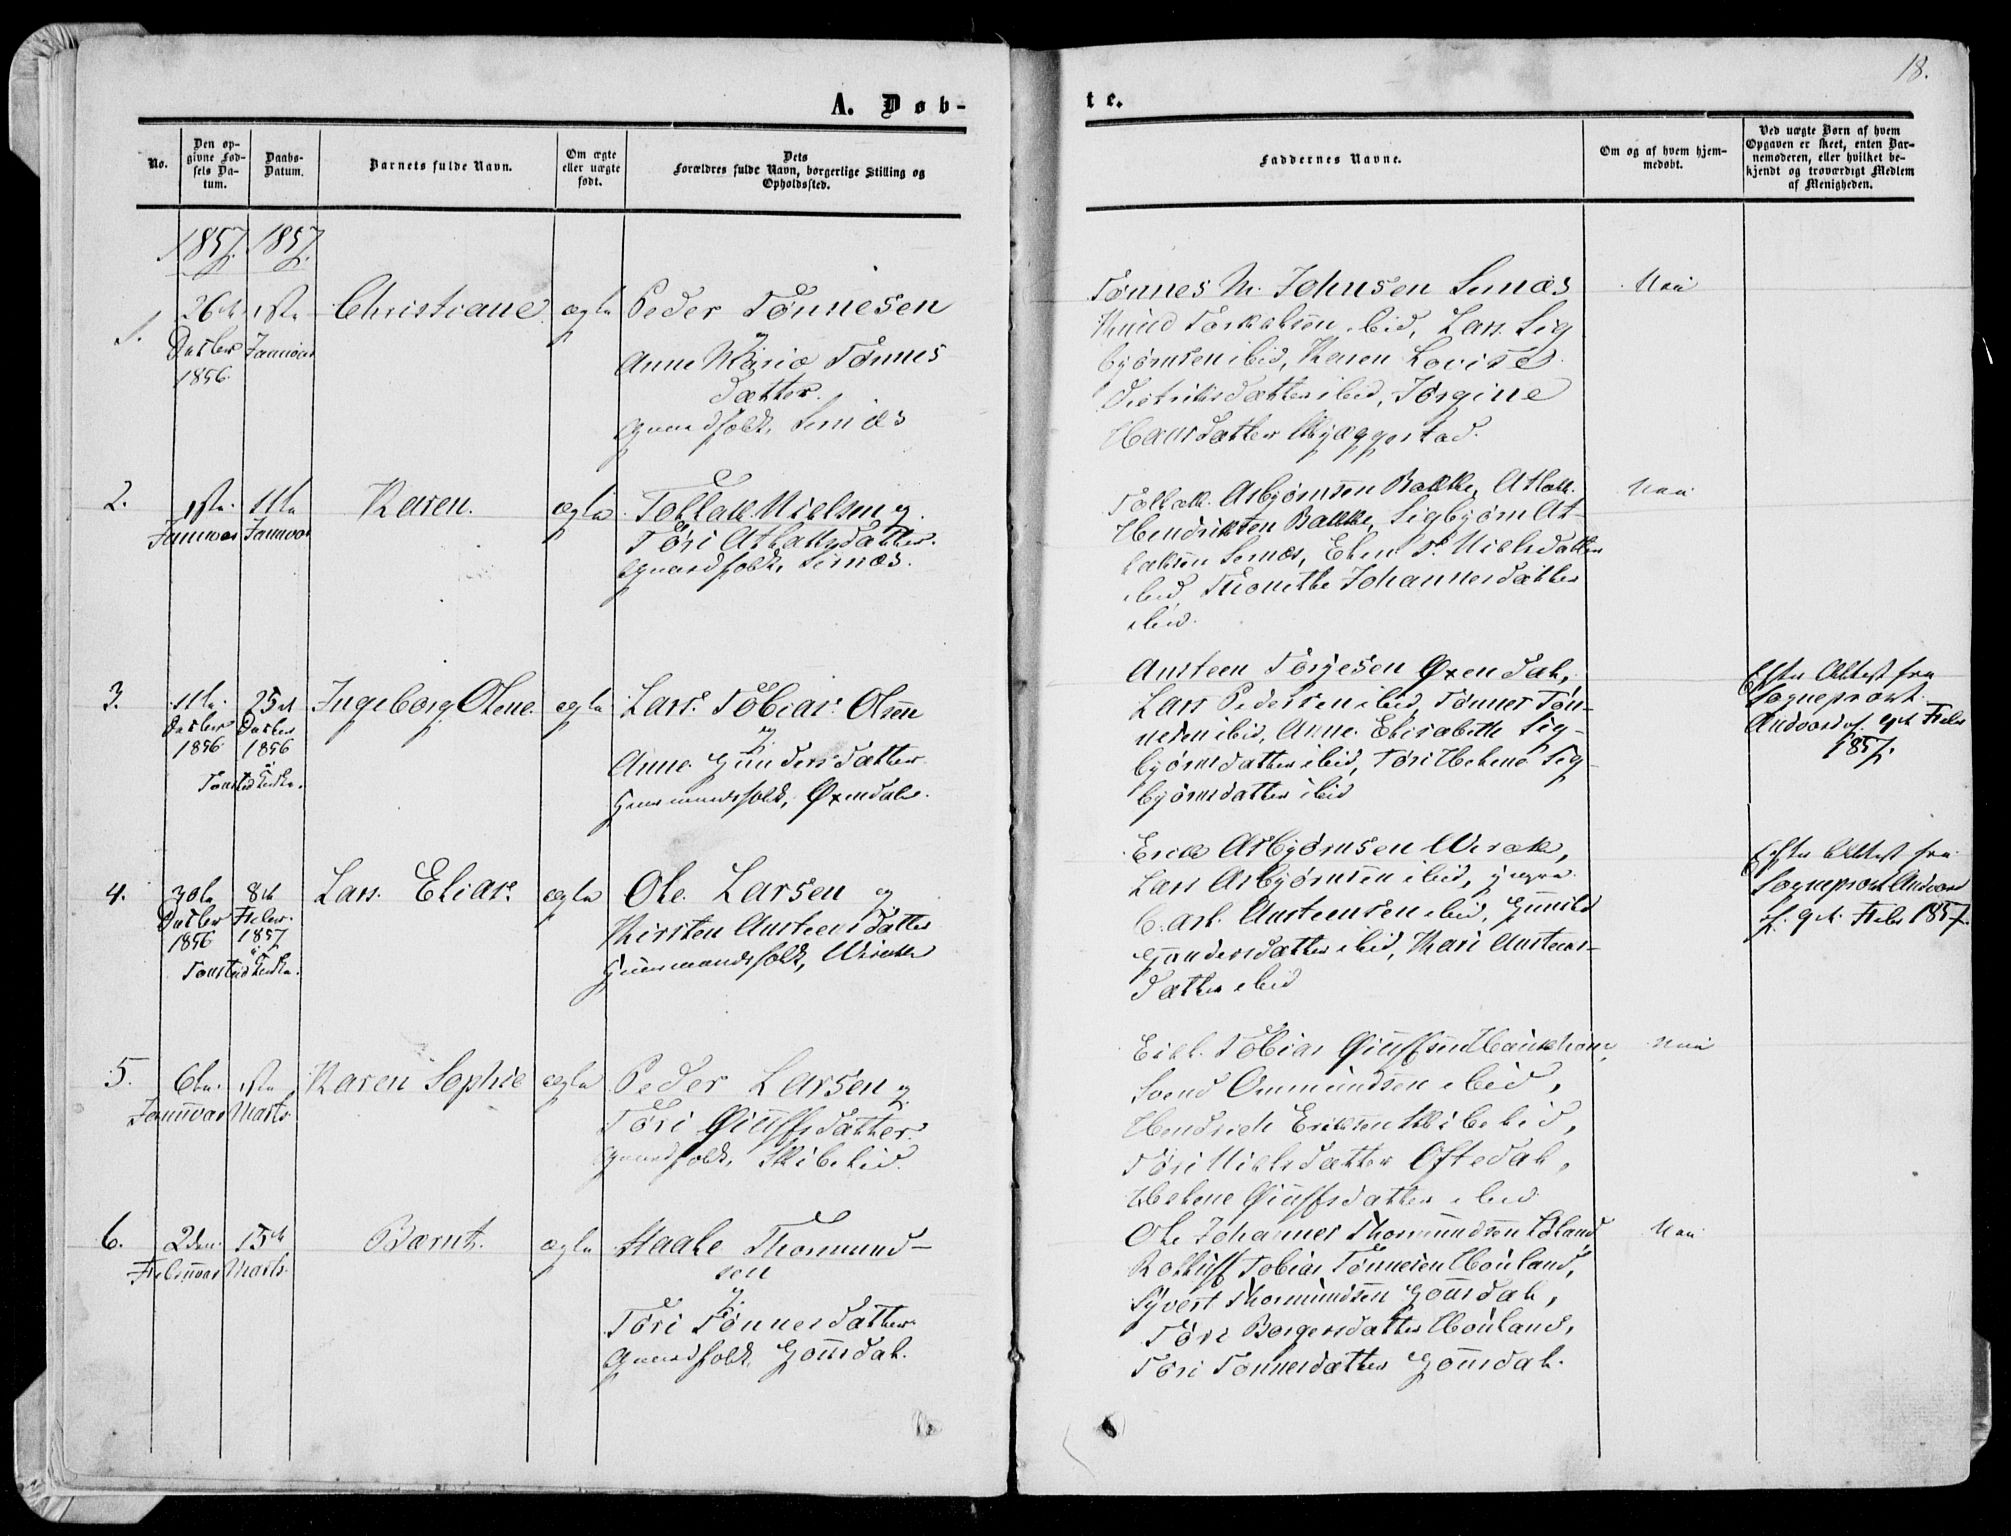 18.
A. Døb-
te.
No.
Den op-
givne Fød-
sels Da-
tum.
Daabs-
Datum.
Barnets fulde Navn.
Om ægte
eller uægte
født.
Dets
Forældres fulde Navn, borgerlige Stilling og
Opholdssted.
Faddernes Navne.
Om og af hvem hjem-
medøbt.
Ved uægte Børn af hvem
Opgaven er skeet, enten Bar-
nemoderen, eller hvilket be-
kjendt og troværdigt Medlem
af Menigheden.
1857. 1857.
1.
26de
Decbr
1856
1ste
Januar
Christiane
ægte
Peder Tønnesen
og
Anne Maria Tønnes
datter.
Gaardfolk, Sirnæs
Tønnes M. Johnsen Sirnæs
Knud Torkelsen ibid, Lars Sig
bjørnsen ibid, Karen Lovise
Dietriksdatter ibid, Jørgine
Hansdatter Skjæggestad.
Nei
2.
1ste
Januar
11te
Januar
Karen.
ægte
Tollak Nielsen og
Tøri Atlaksdatter.
Gaardfolk, Sirnæs.
Tollak Asbjørnsen Bakke, Atlak
Hendriksen Bakke, Sigbjørn At-
laksen Sirnæs, Nielsdatter
ibid, Johannesdatter
ibid.
Nei
3.
11te
Decber
1856
25de
Decber
1856
i
Tonstad Kirke.
Ingeborg Olene
ægte
Lars Tobias Olsen
og
Anne Gundersdatter
Huusmandsfolk, Øxendal.
Austeen Torjesen Øxendal,
Lars Pedersen ibid, Tønnes Tøn-
nesen ibid, Anne Elisabeth Sig-
bjørnsdatter ibid, Tøri Helene Sig
bjørnsdatter ibid
Efter Attest fra
Sognepræst
Andvord af 9de Feber
1857.
4.
30te
Decber
1856
8de
Feber
1857
i
Tonstad Kirke.
Lars Elias
ægte
Ole Larsen og
Kirsten Austeensdatter
Huusmandsfolk, Wirak
Erik Asbjørnsen Wirak,
Lars Asbjørnsen ibid,
Carl Austeensen ibid, Gunild
Gundersdatter ibid, Kari Austeens-
datter ibid
Efter Attest fra
Sognepræst Andvord
af 9de Feber 1857.
5.
6te
Januar
1ste
Marts
Karen Sophie
ægte
Peder Larsen og
Tøri Gjulfsdatter.
Gaardfolk, Skibelid.
Tobias Gjulfsen Haukhom,
Svend Ommundsen ibid,
Hendrich Eriksen Skibelid,
Tøri Nielsdatter Oftedal,
Helene Gjulfsdatter ibid
Nei
6.
2den
Februar
15de
Marts
Bernt.
ægte
Staale Thormund-
sen
og
Tøri Tønnesdatter
Gaardfolk, Gousdal.
Ole Johannes Thormundsen
Rolluf Tobias Tønnesen Houland,
Syvert Thormundsen Gousdal,
Tøri Borgersdatter Houland,
Tøri Tønnesdatter Gousdal.
Nei